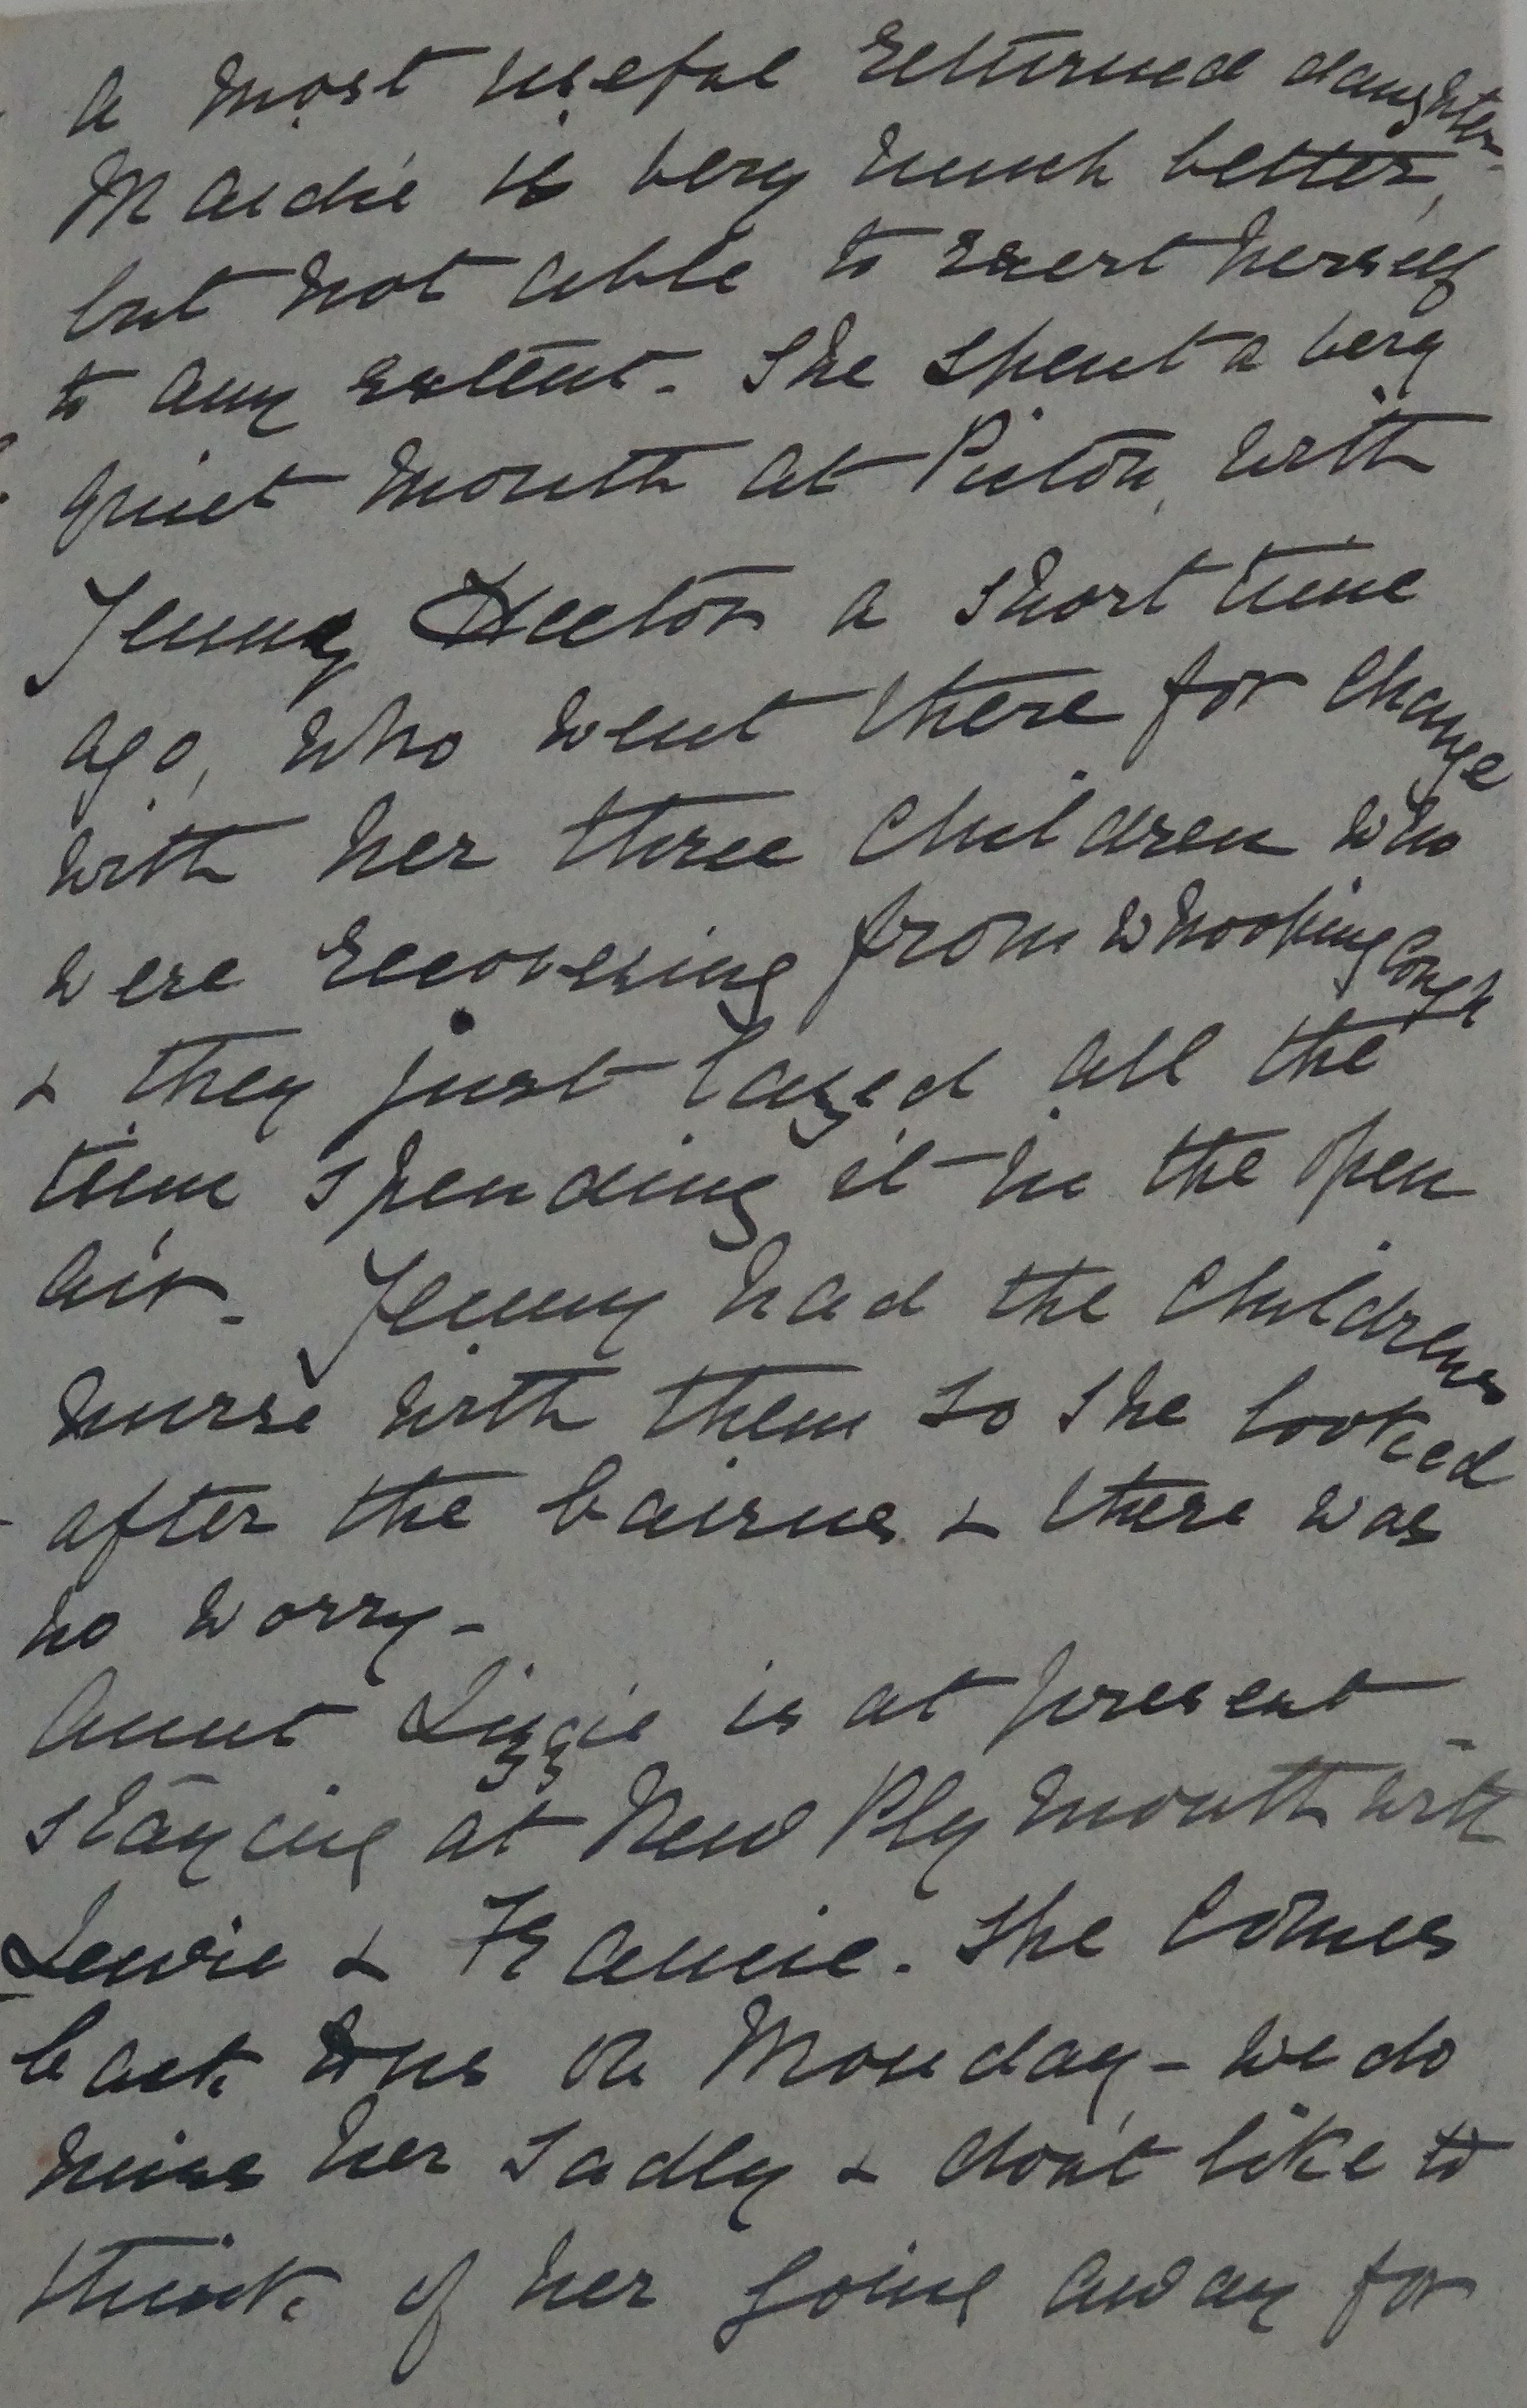 a most useful returned daughter-
Maidie is very much better,
but not able to exert herself
to any extent. She spent a very
quiet month at Picton, with
Jenny Hector a short time
ago, who went there for change
with her three children who
were recovering from whooping cough
& they just lazed all the
time spending it in the open
air. Jenny had the childrens
nurse with them so she looked
after the bairns & there was
no worry-
Aunt Lizzie is at present
staying at New Plymouth with
Lewie & Frannie. She comes
back to us on Monday - we do
miss her sadly & don't like to
think of her going away for